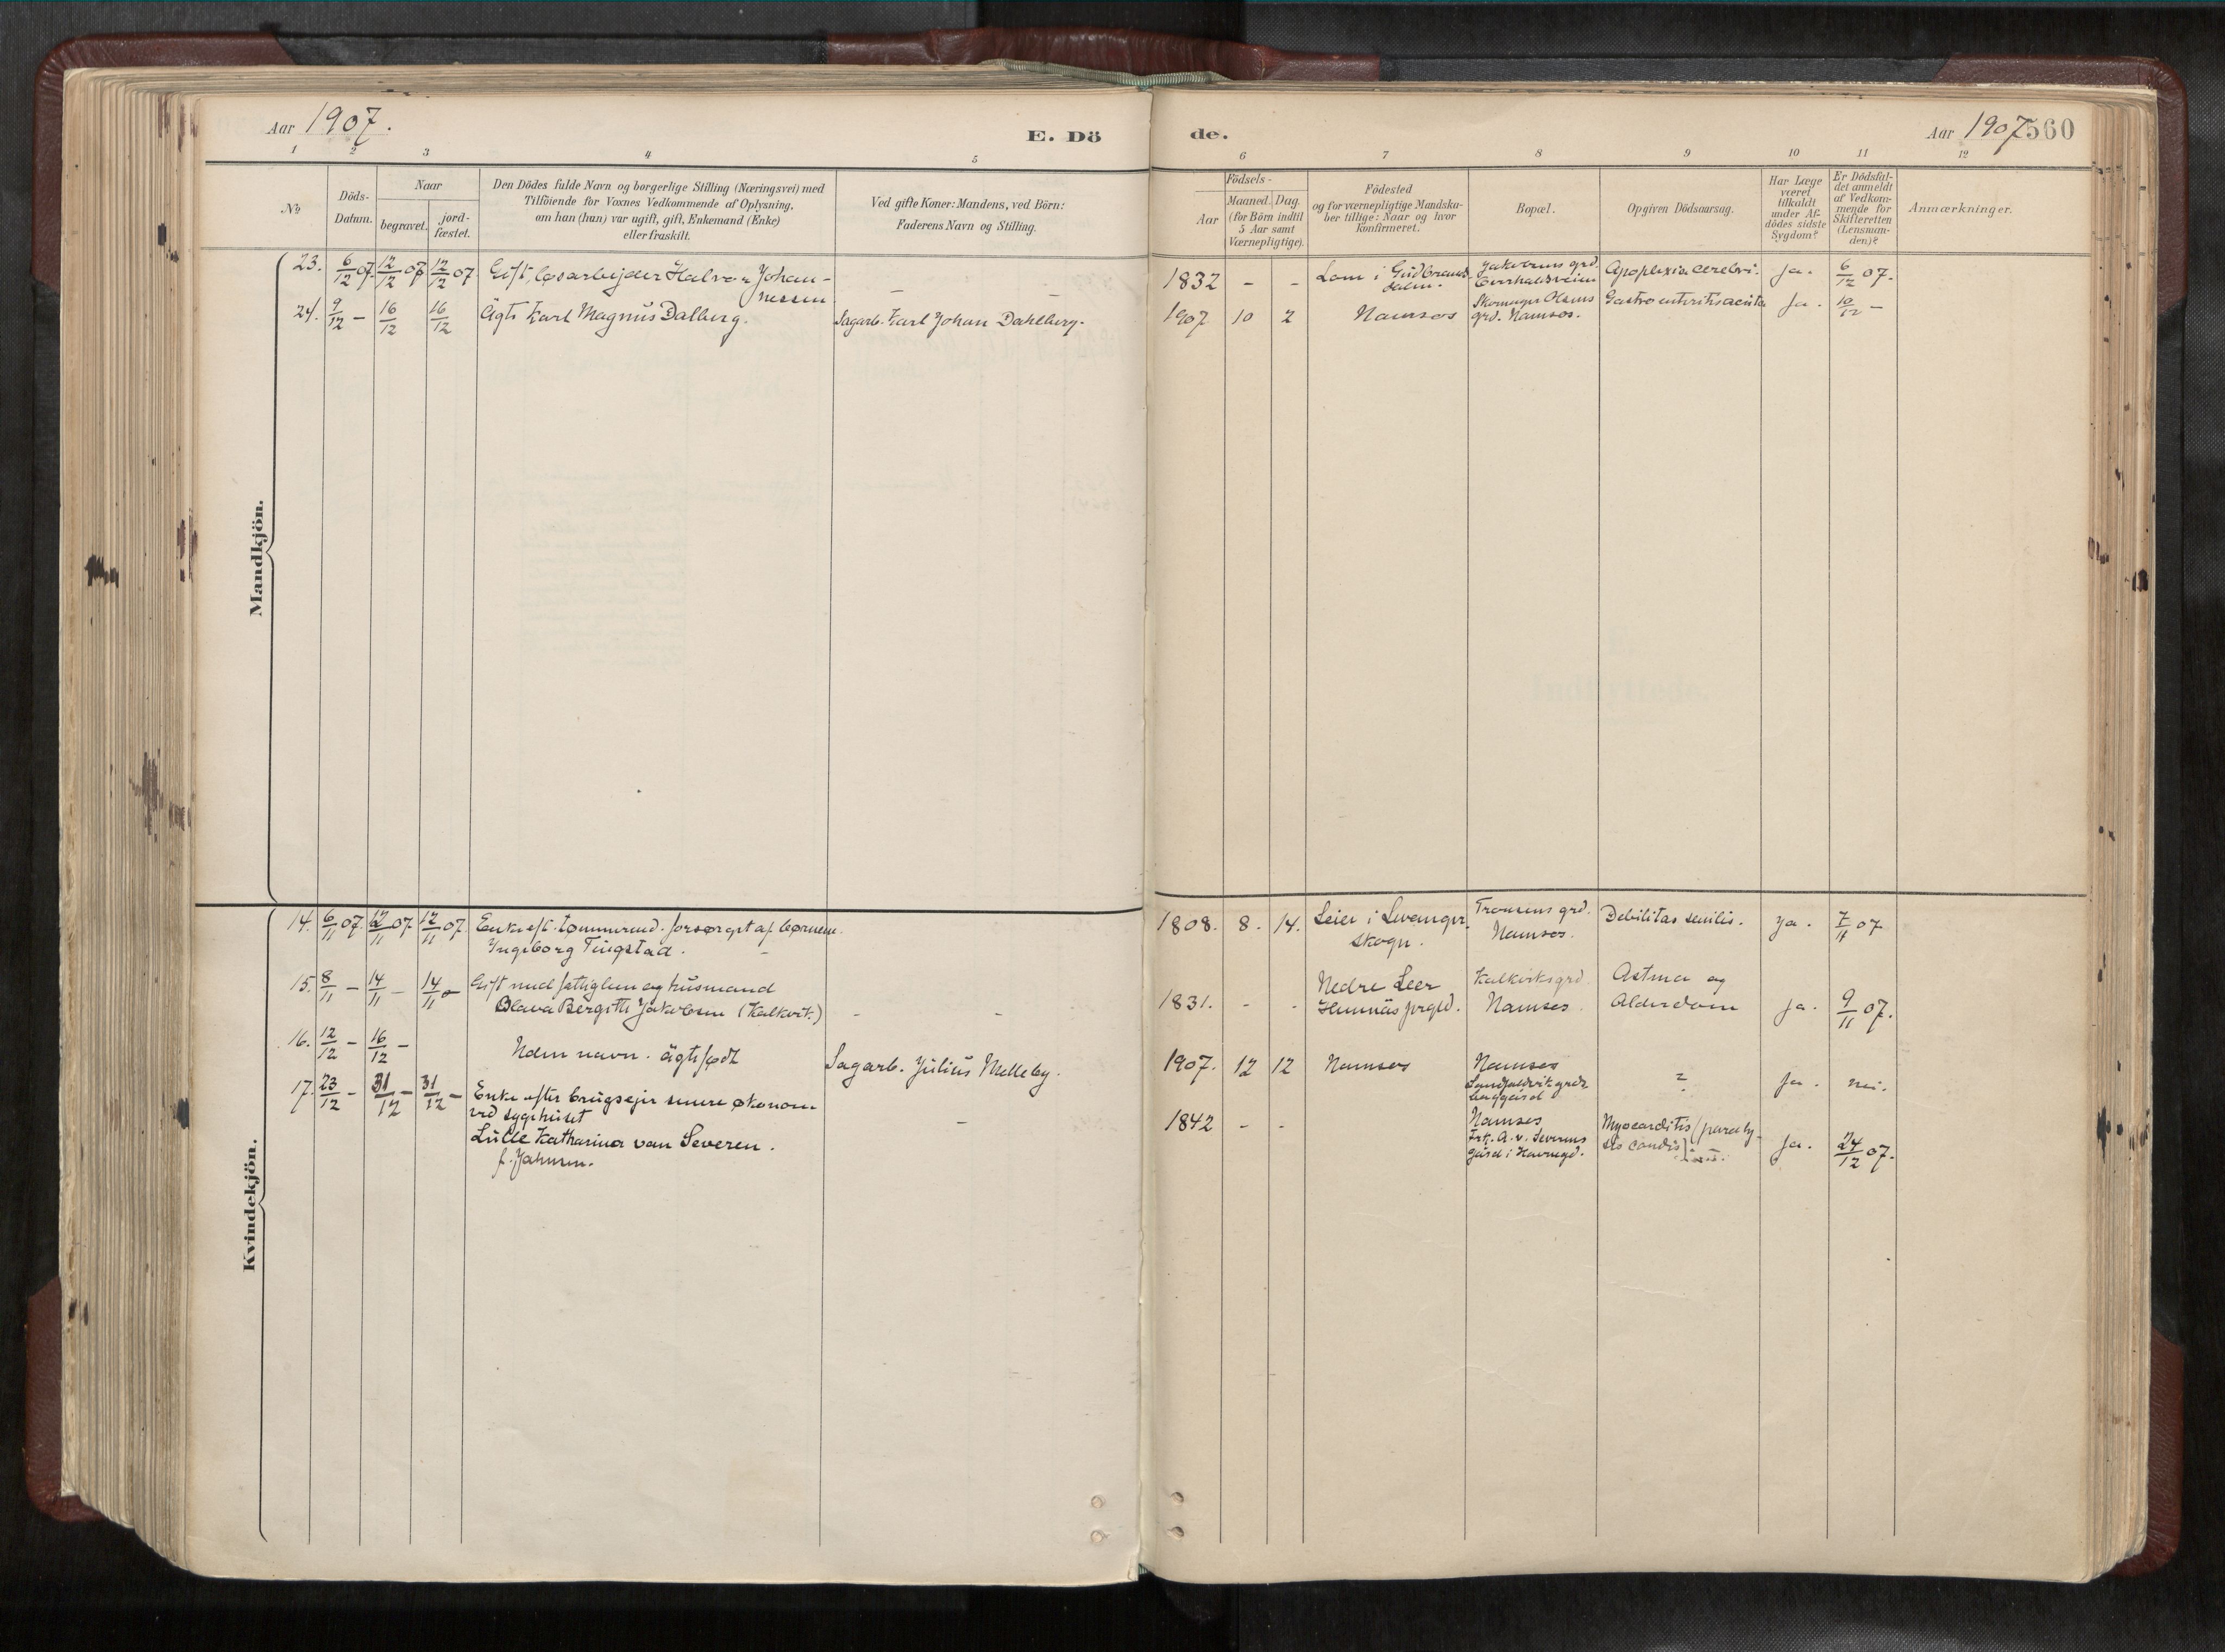 Aar 1907.
E. Dö
de.
Aar 1907
560
1 2 3 4 5
6 7 8 9 10 11 12
No
Döds-
Datum.
Naar
begravet.
jord-
fæstet.
Den Dödes fulde Navn og borgerlige Stilling (Næringsvei) med
Tilföiende for Voxnes Vedkommende af Oplysning,
om han (hun) var ugift, gift, Enkemand (Enke)
eller fraskilt.
Ved gifte Koner: Mandens, ved Börn:
Faderens Navn og Stilling.
Födsels-
Aar
Maaned. Dag.
(for Börn indtil
5 Aar samt
Værnepligtige).
Födested
og for værnepligtige Mandska-
ber tillige: Naar og hvor
konfirmeret.
Bopæl.
Opgiven Dödsaarsag.
Har Læge
været
tilkaldt
under Af-
dödes sidste
Sygdom?
Er Dödsfal-
det anmeldt
af Vedkom-
mende for
Skifteretten
(Lensman-
den)?
Anmærkninger.
Mandkjön.
23. 6/12 07. 12/12 07 12/12 07 Gift, løsarbejder Halvor Johan-
nessen - -
1832 - - Lom i Gudbrands-
dalen.
Jakobsens grd.
Overhaldsveien
Apoplexia cerebri. Ja. 6/12 07.
24. 9/12 - 16/12 16/12 Ägte Karl Magnus Dalberg. Sagarb. Karl Johan Dahlberg.
1907 10 2 Namsos
Skomager Olsens
grd. Namsos.
Gastroenteritis acuta Ja. 10/12 -
Kvindekjön.
14. 6/11 07. 12/11 07. 12/11 07. Enke eft. tømmermd. forsørget af børnene.
Ingeborg Tingstad. -
1808. 8. 14. Leier i Levanger
Skogn.
Tronsens grd.
Namsos.
Debilitas senilis. Ja. 7/11 07
15. 8/11 - 14/11 - 14/11 - Gift med fattiglem og husmand
Olava Bergitte Jakobsen (Kalkvik.) - -
1831. - - Nedre Leer
Hemnäs prgld.
Kalkviksgrd.
Namsos.
Astma og
Alderdom Ja. 9/11 07.
16. 12/12 - 16/12 - Uden navn. ägte født Sagarb. Julius Melleby.
1907. 12 12 Namsos Namsos
? Ja. nei.
17. 23/12 - 31/12 - 31/12 - Enke efter brugsejer senere økonom
ved sygehuset
Lulle Katharina van Severen.
f. Jahnsen.
-
1842 - -
Namsos
Frk. A. v. Severens
gård i Havnegd.
Myocarditis (paraly-
sis cordis) Ja. 24/12 07.